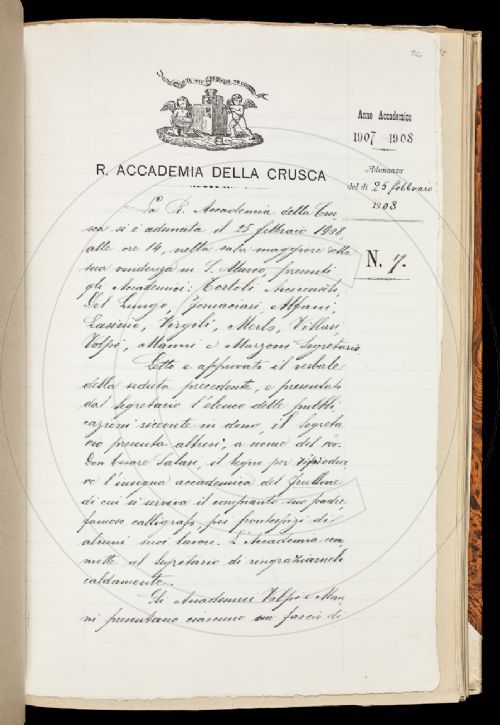 Anno Accademico
1907-1908
R. ACCADEMIA DELLA CRUSCA
Adunanza
del dì 25 febbraio
1908
N. 7.
La R. Accademia della Cru
sca si è adunata il 25 febbraio 1908
alle ore 14, nella sala maggiore della
sua residenza in S. Marco, presenti
gli Accademici: Tortoli Arciconsolo,
Del Lungo, Gomaciari, Alfani,
Lasinio, Virgili, Merlo, Villari,
Volpi, Manni e Mazzoni Segretario.
Letto e approvato il verbale
della seduta precedente, e presentato
dal Segretario l'elenco delle pubbli
cazioni ricevute in dono, il Segreta
rio presenta altresì, a nome del
Don Cesare Salari, il legno per riprodur
re l'insegna accademica del frullone,
di cui si serviva il compianto suo padre,
famoso calligrafo, pei frontespizi di
alcuni suoi lavori. L'Accademia com
mette al Segretario di ringraziarnelo
caldamente.
Gli Accademici Volpi e Man
ni presentano ciascuno un fascio di